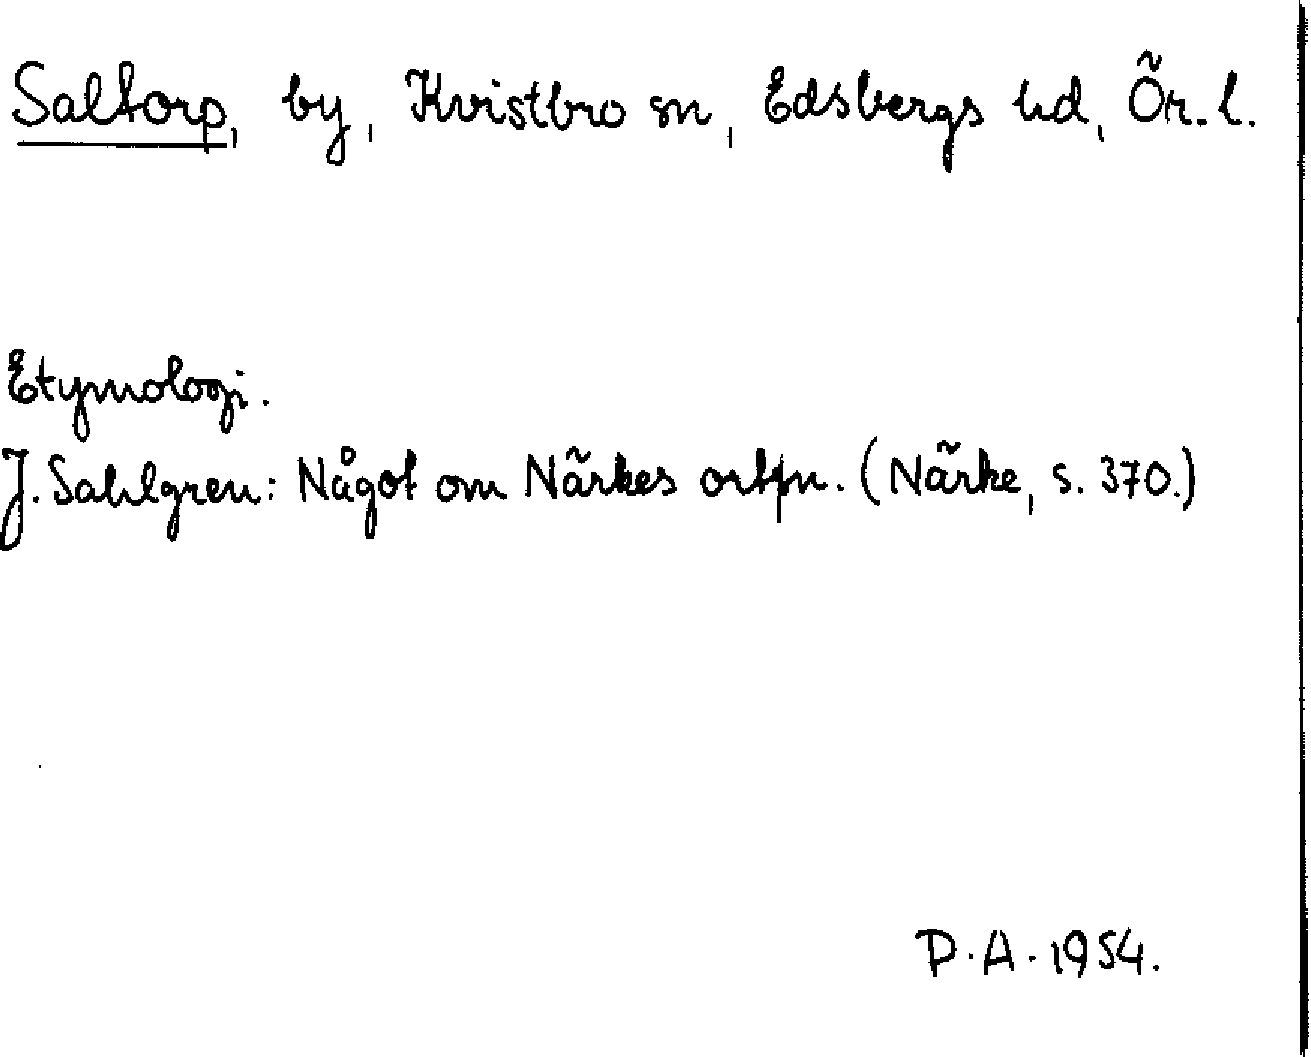 Saltorp, by, Kvistbro sn, Edsbergs hd, Ör. l.
Etymologi.
J. Sahlgren: Något om Närkes ortpn. (Närke, s. 370.)
P. A. 1954.